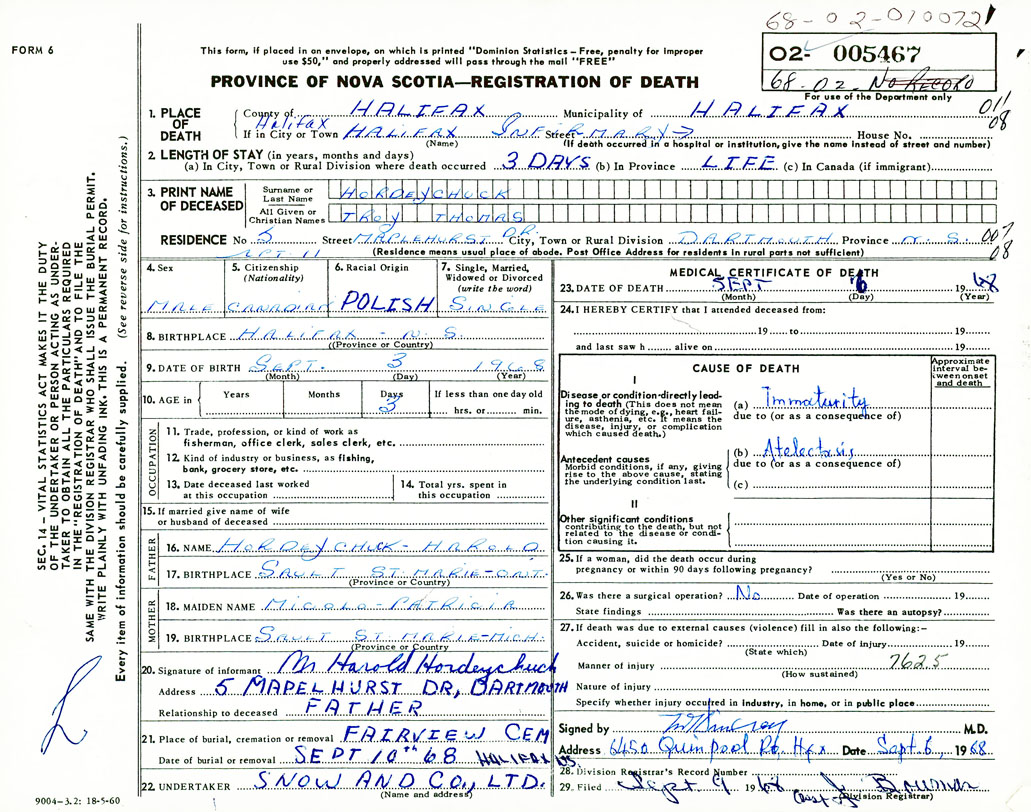 68-02-010072
FORM 6
This form, if placed in an envelope, on which is printed "Dominion Statistics – Free, penalty for improper
use $50," and properly addressed will pass through the mail "FREE"
02- 005467
68-02 NO RECORD
For use of the Department only
PROVINCE OF NOVA SCOTIA—REGISTRATION OF DEATH
011
08
1. PLACE OF DEATH County of HALIFAX Municipality of HALIFAX
Halifax
If in City or Town HALIFAX INFIRMARY Street House No.
(Name) (If death occurred in a hospital or institution, give the name instead of street and number)
2. LENGTH OF STAY (in years, months and days)
(a) In City, Town or Rural Division where death occurred 3 DAYS (b) In Province LIFE (c) In Canada (if immigrant)
3. PRINT NAME OF DECEASED Surname or Last Name HORDEYCHUCK
All Given or Christian Names TROY THOMAS
RESIDENCE No 5 Street MAPLEHURST DR. City, Town or Rural Division DARTMOUTH Province N. S.
007
08
APT 11 (Residence means usual place of abode. Post Office Address for residents in rural parts not sufficient)
4. Sex 5. Citizenship (Nationality) 6. Racial Origin 7. Single, Married, Widowed or Divorced (write the word)
MALE CANADIAN POLISH SINGLE
8. BIRTHPLACE HALIFAX - N. S.
((Province or Country)
9. DATE OF BIRTH SEPT. 3 1968
(Month) (Day) (Year)
10. AGE in Years Months Days If less than one day old
3 hrs. or min.
OCCUPATION
11. Trade, profession, or kind of work as
fisherman, office clerk, sales clerk, etc.
12. Kind of industry or business, as fishing,
bank, grocery store, etc.
13. Date deceased last worked
at this occupation
14. Total yrs. spent in
this occupation
15. If married give name of wife
or husband of deceased
FATHER
16. NAME HORDEYCHUCK - HAROLD
17. BIRTHPLACE SAULT ST. MARIE - ONT.
(Province or Country)
MOTHER
18. MAIDEN NAME PATRICIA
19. BIRTHPLACE SAULT ST. MARIE - MICH.
(Province or Country
20. Signature of informant Mr Harold Hordeychuck
Address 5 MAPELHURST DR, DARTMOUTH
Relationship to deceased FATHER
21. Place of burial, cremation or removal FAIRVIEW CEM
Date of burial or removal SEPT 10th 68 HALIFAX NS.
22. UNDERTAKER SNOW AND CO., LTD.
(Name and address)
MEDICAL CERTIFICATE OF DEATH
23. DATE OF DEATH SEPT 6 1968
(Month) (Day) (Year)
24. I HEREBY CERTIFY that I attended deceased from:
19 to 19
and last saw h alive on 19
CAUSE OF DEATH
Approximate interval between onset and death
I
Disease or condition directly leading to death (This does not mean the mode of dying, e.g., heart failure, asthenia, etc. It means the disease, injury, or complication which caused death.)
(a) Immaturity
due to (or as a consequence of)
Antecedent causes
Morbid conditions, if any, giving rise to the above cause, stating the underlying condition last.
(b) Atelectasis
due to (or as a consequence of)
(c)
II
Other significant conditions
contributing to the death, but not related to the disease or condition causing it.
25. If a woman, did the death occur during
pregnancy or within 90 days following pregnancy?
(Yes or No)
26. Was there a surgical operation? No Date of operation 19
State findings Was there an autopsy?
27. If death was due to external causes (violence) fill in also the following:–
Accident, suicide or homicide? Date of injury 19
(State which)
Manner of injury 7625
(How sustained)
Nature of injury
Specify whether injury occurred in industry, in home, or in public place
Signed by M.D.
Address 6450 Quinpool Rd, Hfx Date Sept. 6, 1968
28. Division Registrar's Record Number
29. Filed Sept 9 1968
(Division Registrar)
SEC. 14 – VITAL STATISTICS ACT MAKES IT THE DUTY
OF THE UNDERTAKER OR PERSON ACTING AS UNDER-
TAKER TO OBTAIN ALL THE PARTICULARS REQUIRED
IN THE "REGISTRATION OF DEATH" AND TO FILE THE
SAME WITH THE DIVISION REGISTRAR WHO SHALL ISSUE THE BURIAL PERMIT.
WRITE PLAINLY WITH UNFADING INK. THIS IS A PERMANENT RECORD.
Every item of information should be carefully supplied. (See reverse side for instructions.)
9004–3.2: 18-5-60